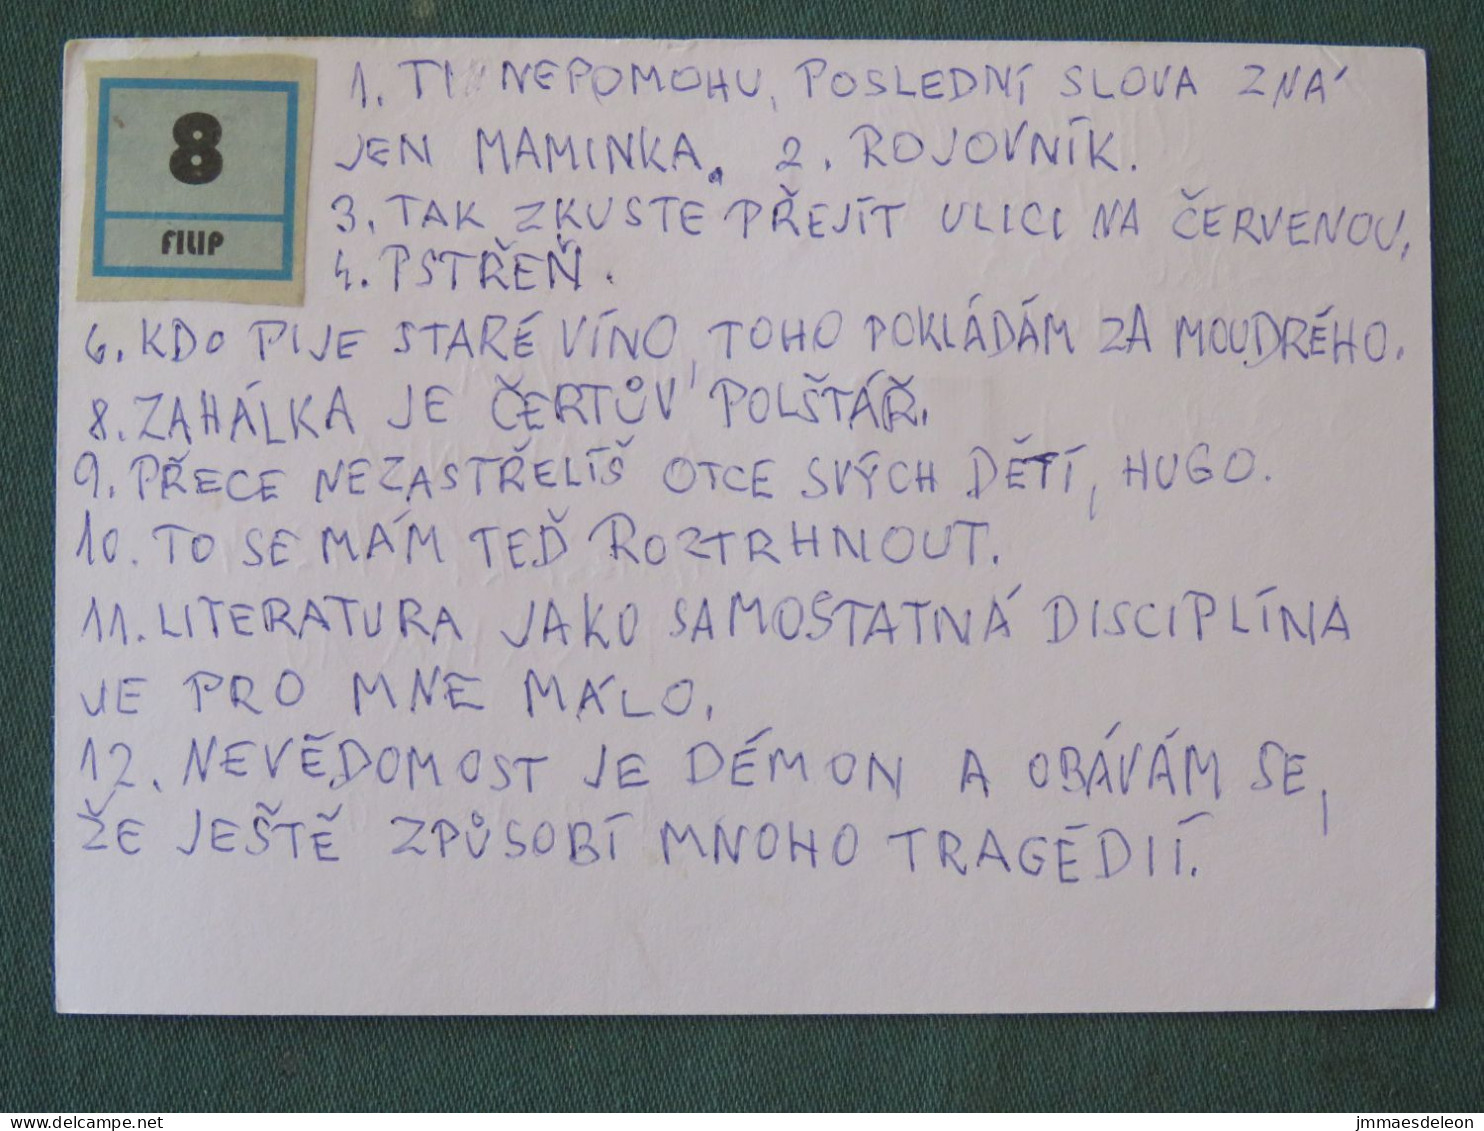 8
FILIP
1. TI NEPOMOHU, POSLEDNÍ SLOVA ZNÁ
JEN MAMINKA. 2. ROJOVNÍK.
3. TAK ZKUSTE PŘEJÍT ULICI NA ČERVENOU.
4. PSTŘEŇ.
6. KDO PIJE STARÉ VÍNO, TOHO POKLÁDÁM ZA MOUDRÉHO.
8. ZAHÁLKA JE ČERTŮV POLŠTÁŘ.
9. PŘECE NEZASTŘELÍŠ OTCE SVÝCH DĚTÍ, HUGO.
10. TO SE MÁM TEĎ ROZTRHNOUT.
11. LITERATURA JAKO SAMOSTATNÁ DISCIPLÍNA
JE PRO MNE MÁLO.
12. NEVĚDOMOST JE DÉMON A OBÁVÁM SE,
ŽE JEŠTĚ ZPŮSOBÍ MNOHO TRAGÉDIÍ.
jmmaesdeleon